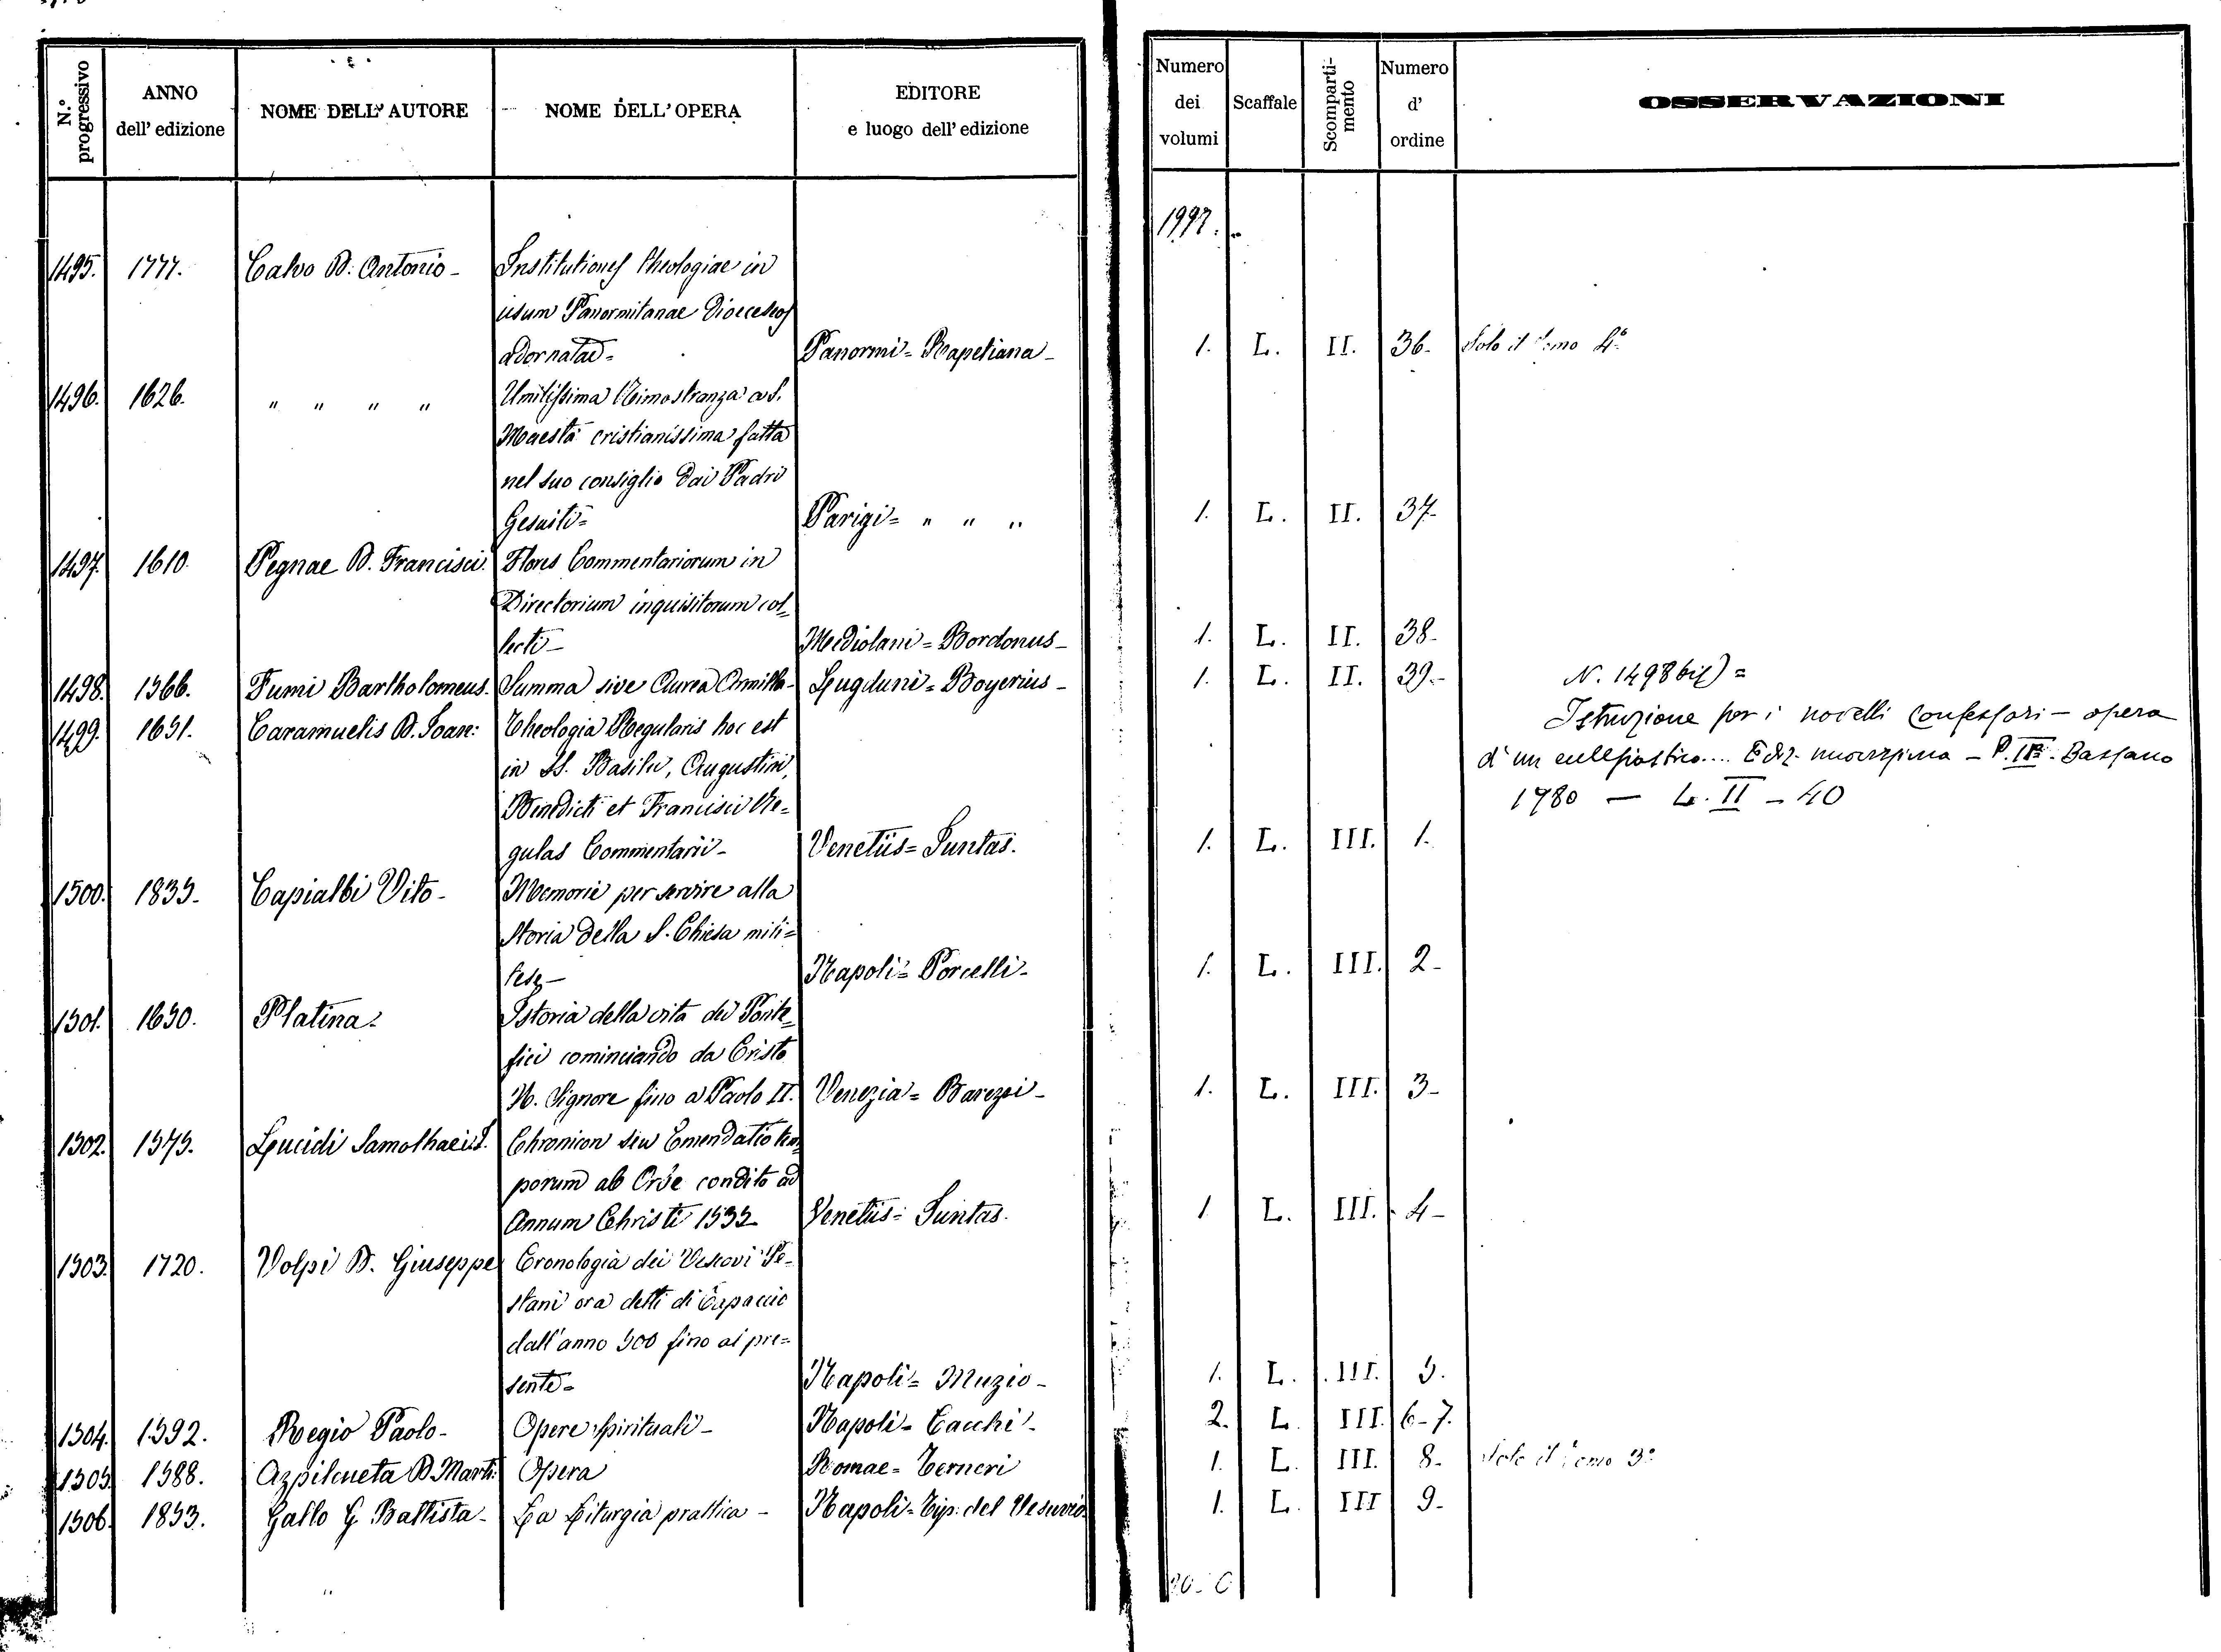 N.º progressivo
ANNO dell' edizione
NOME DELL' AUTORE
NOME DELL' OPERA
EDITORE e luogo dell' edizione
Numero dei volumi
Scaffale
Scomparti-mento
Numero d' ordine
OSSERVAZIONI
1997.
1495. 1777. Calvo D. Antonio - Institutiones theologiae in
usum Panormitanae Dioeceseos
adornatae = Panormi = Rapetiana - 1. L. II. 36. Solo il tomo 4º
1496. 1626. " " " " Umilissima Rimostranza a S.
Maestà cristianissima fatta
nel suo consiglio dai Padri
Gesuiti = Parigi = " " " 1. L. II. 37.
1497. 1610. Pegnae D. Francisci. Flores Commentariorum in
Directorium inquisitorum col=
lecti - Mediolani = Bordonus - 1. L. II. 38-
1498. 1566. Fumi Bartholomeus. Summa sive Aurea Armilla - Lugduni = Boyerius - 1. L. II. 39.-
N. 1498 bis) =
Istruzione per i novelli Confessori - opera
d'un ecclesiastico.... Ediz. - P. IIª. Bassano
1780 — L. II - 40
1499. 1651. Caramuelis D. Joan: Theologia Regularis hoc est
in SS. Basilii, Augustini,
Benedicti et Francisci Re=
gulas Commentarii - Venetiis = Juntas. 1. L. III. 1.
1500. 1835. Capialbi Vito - Memorie per servire alla
storia della S. Chiesa mili=
tese - Napoli = Porcelli - 1. L. III. 2-
1501. 1650. Platina. Istoria della vita dei Ponte=
fici cominciando da Cristo
N. Signore fino a Paolo II. Venezia = Barezzi - 1. L. III. 3-
1502. 1575. Lucidi Samothaei Chronicon seu Emendatio tem
porum ab Orbe condito ad
Annum Christi 1535 Venetiis = Juntas. 1 L. III. 4-
1503. 1720. Volpi D. Giuseppe Cronologia dei Vescovi Pe=
stani ora detti di Capaccio
dall'anno 500 fino al pre=
sente = Napoli = Muzio - 1. L. III. 5.
1504. 1592. Regio Paolo - Opere spirituali - Napoli = Cacchi - 2. L. III. 6-7.
1505. 1588. Azpilcueta D. Marti: Opera Romae = Terneri 1. L. III. 8. Solo il tomo 3º
1506. 1853. Gallo G. Battista - La Liturgia prattica - Napoli = Tip: del Vesuvio. 1. L. III 9-